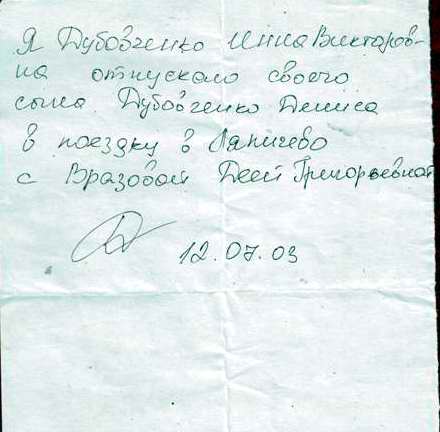 Я Дубовченко Инна Викторов-
на отпускаю своего
сына Дубовченко Дениса
в поездку в Ляпичево
с Вразовой Деей Григорьевной
12.07.03